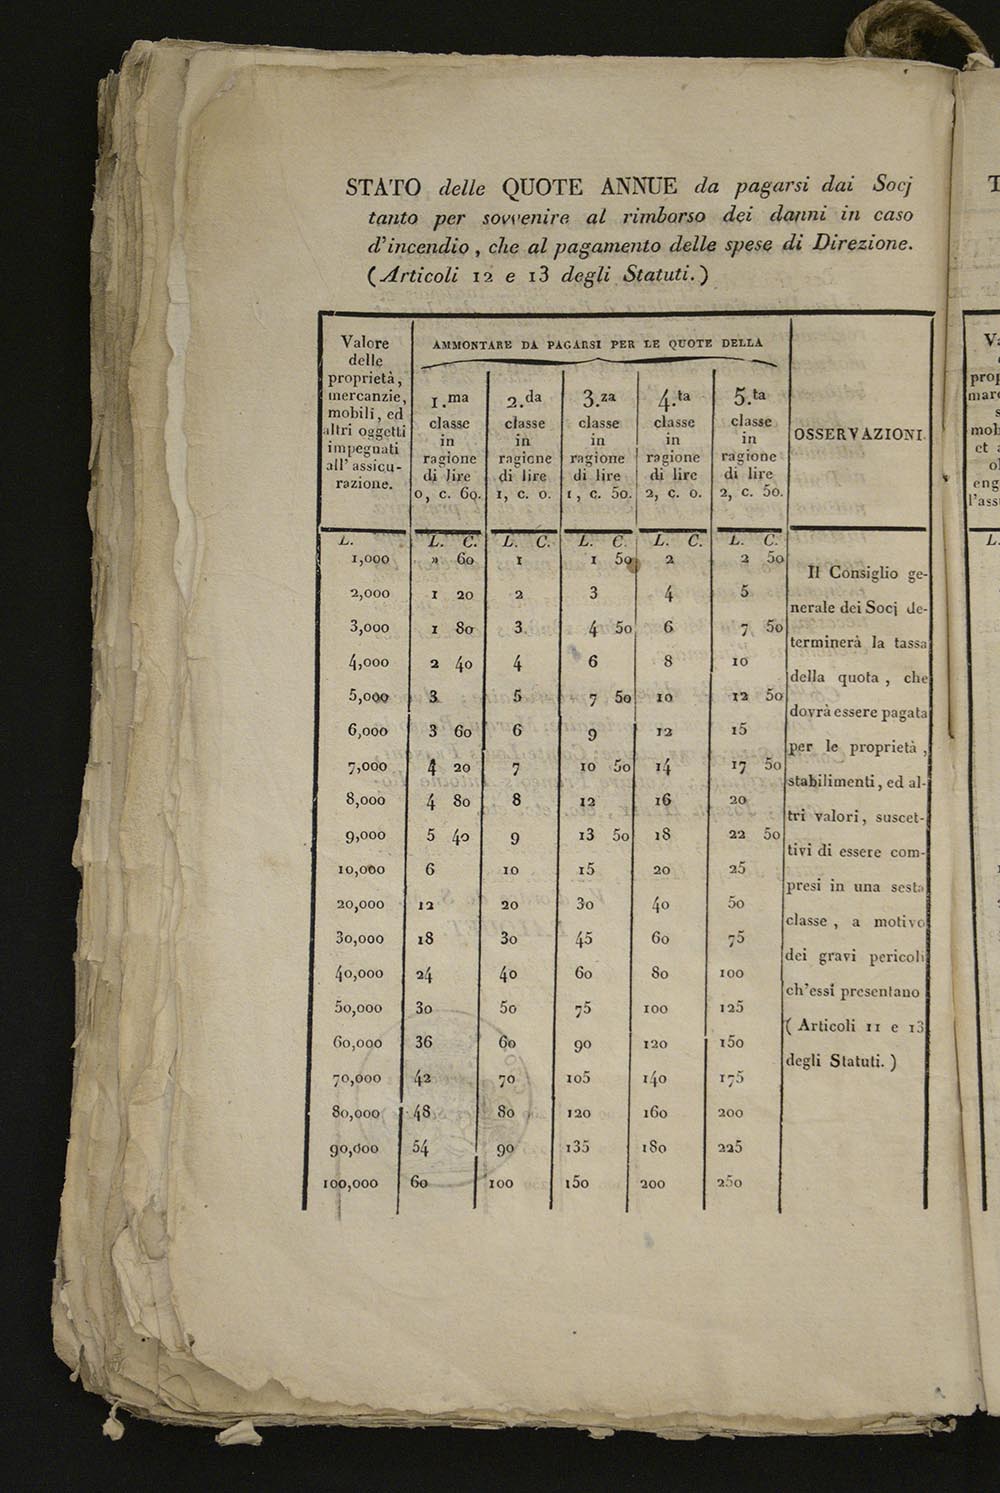 STATO delle QUOTE ANNUE da pagarsi dai Socj
tanto per sovvenire al rimborso dei danni in caso
d'incendio, che al pagamento delle spese di Direzione.
(Articoli 12 e 13 degli Statuti.)
Valore
delle
proprietà,
mercanzie,
mobili, ed
altri oggetti
impegnati
all'assicu-
razione.
AMMONTARE DA PAGARSI PER LE QUOTE DELLA
1.ma
classe
in
ragione
di lire
0, c. 60.
2.da
classe
in
ragione
di lire
1, c. 0.
3.za
classe
in
ragione
di lire
1, c. 50.
4.ta
classe
in
ragione
di lire
2, c. 0.
5.ta
classe
in
ragione
di lire
2, c. 50.
OSSERVAZIONI.
L. L. C. L. C. L. C. L. C. L. C.
1,000 » 60 1 1 50 2 2 50
2,000 1 20 2 3 4 5
3,000 1 80 3 4 50 6 7 50
4,000 2 40 4 6 8 10
5,000 3 5 7 50 10 12 50
6,000 3 60 6 9 12 15
7,000 4 20 7 10 50 14 17 50
8,000 4 80 8 12 16 20
9,000 5 40 9 13 50 18 22 50
10,000 6 10 15 20 25
20,000 12 20 30 40 50
30,000 18 30 45 60 75
40,000 24 40 60 80 100
50,000 30 50 75 100 125
60,000 36 60 90 120 150
70,000 42 70 105 140 175
80,000 48 80 120 160 200
90,000 54 90 135 180 225
100,000 60 100 150 200 250
Il Consiglio ge-
nerale dei Socj de-
terminerà la tassa
della quota, che
dovrà essere pagata
per le proprietà,
stabilimenti, ed al-
tri valori, suscet-
tivi di essere com-
presi in una sesta
classe, a motivo
dei gravi pericoli
ch'essi presentano
(Articoli 11 e 13
degli Statuti.)